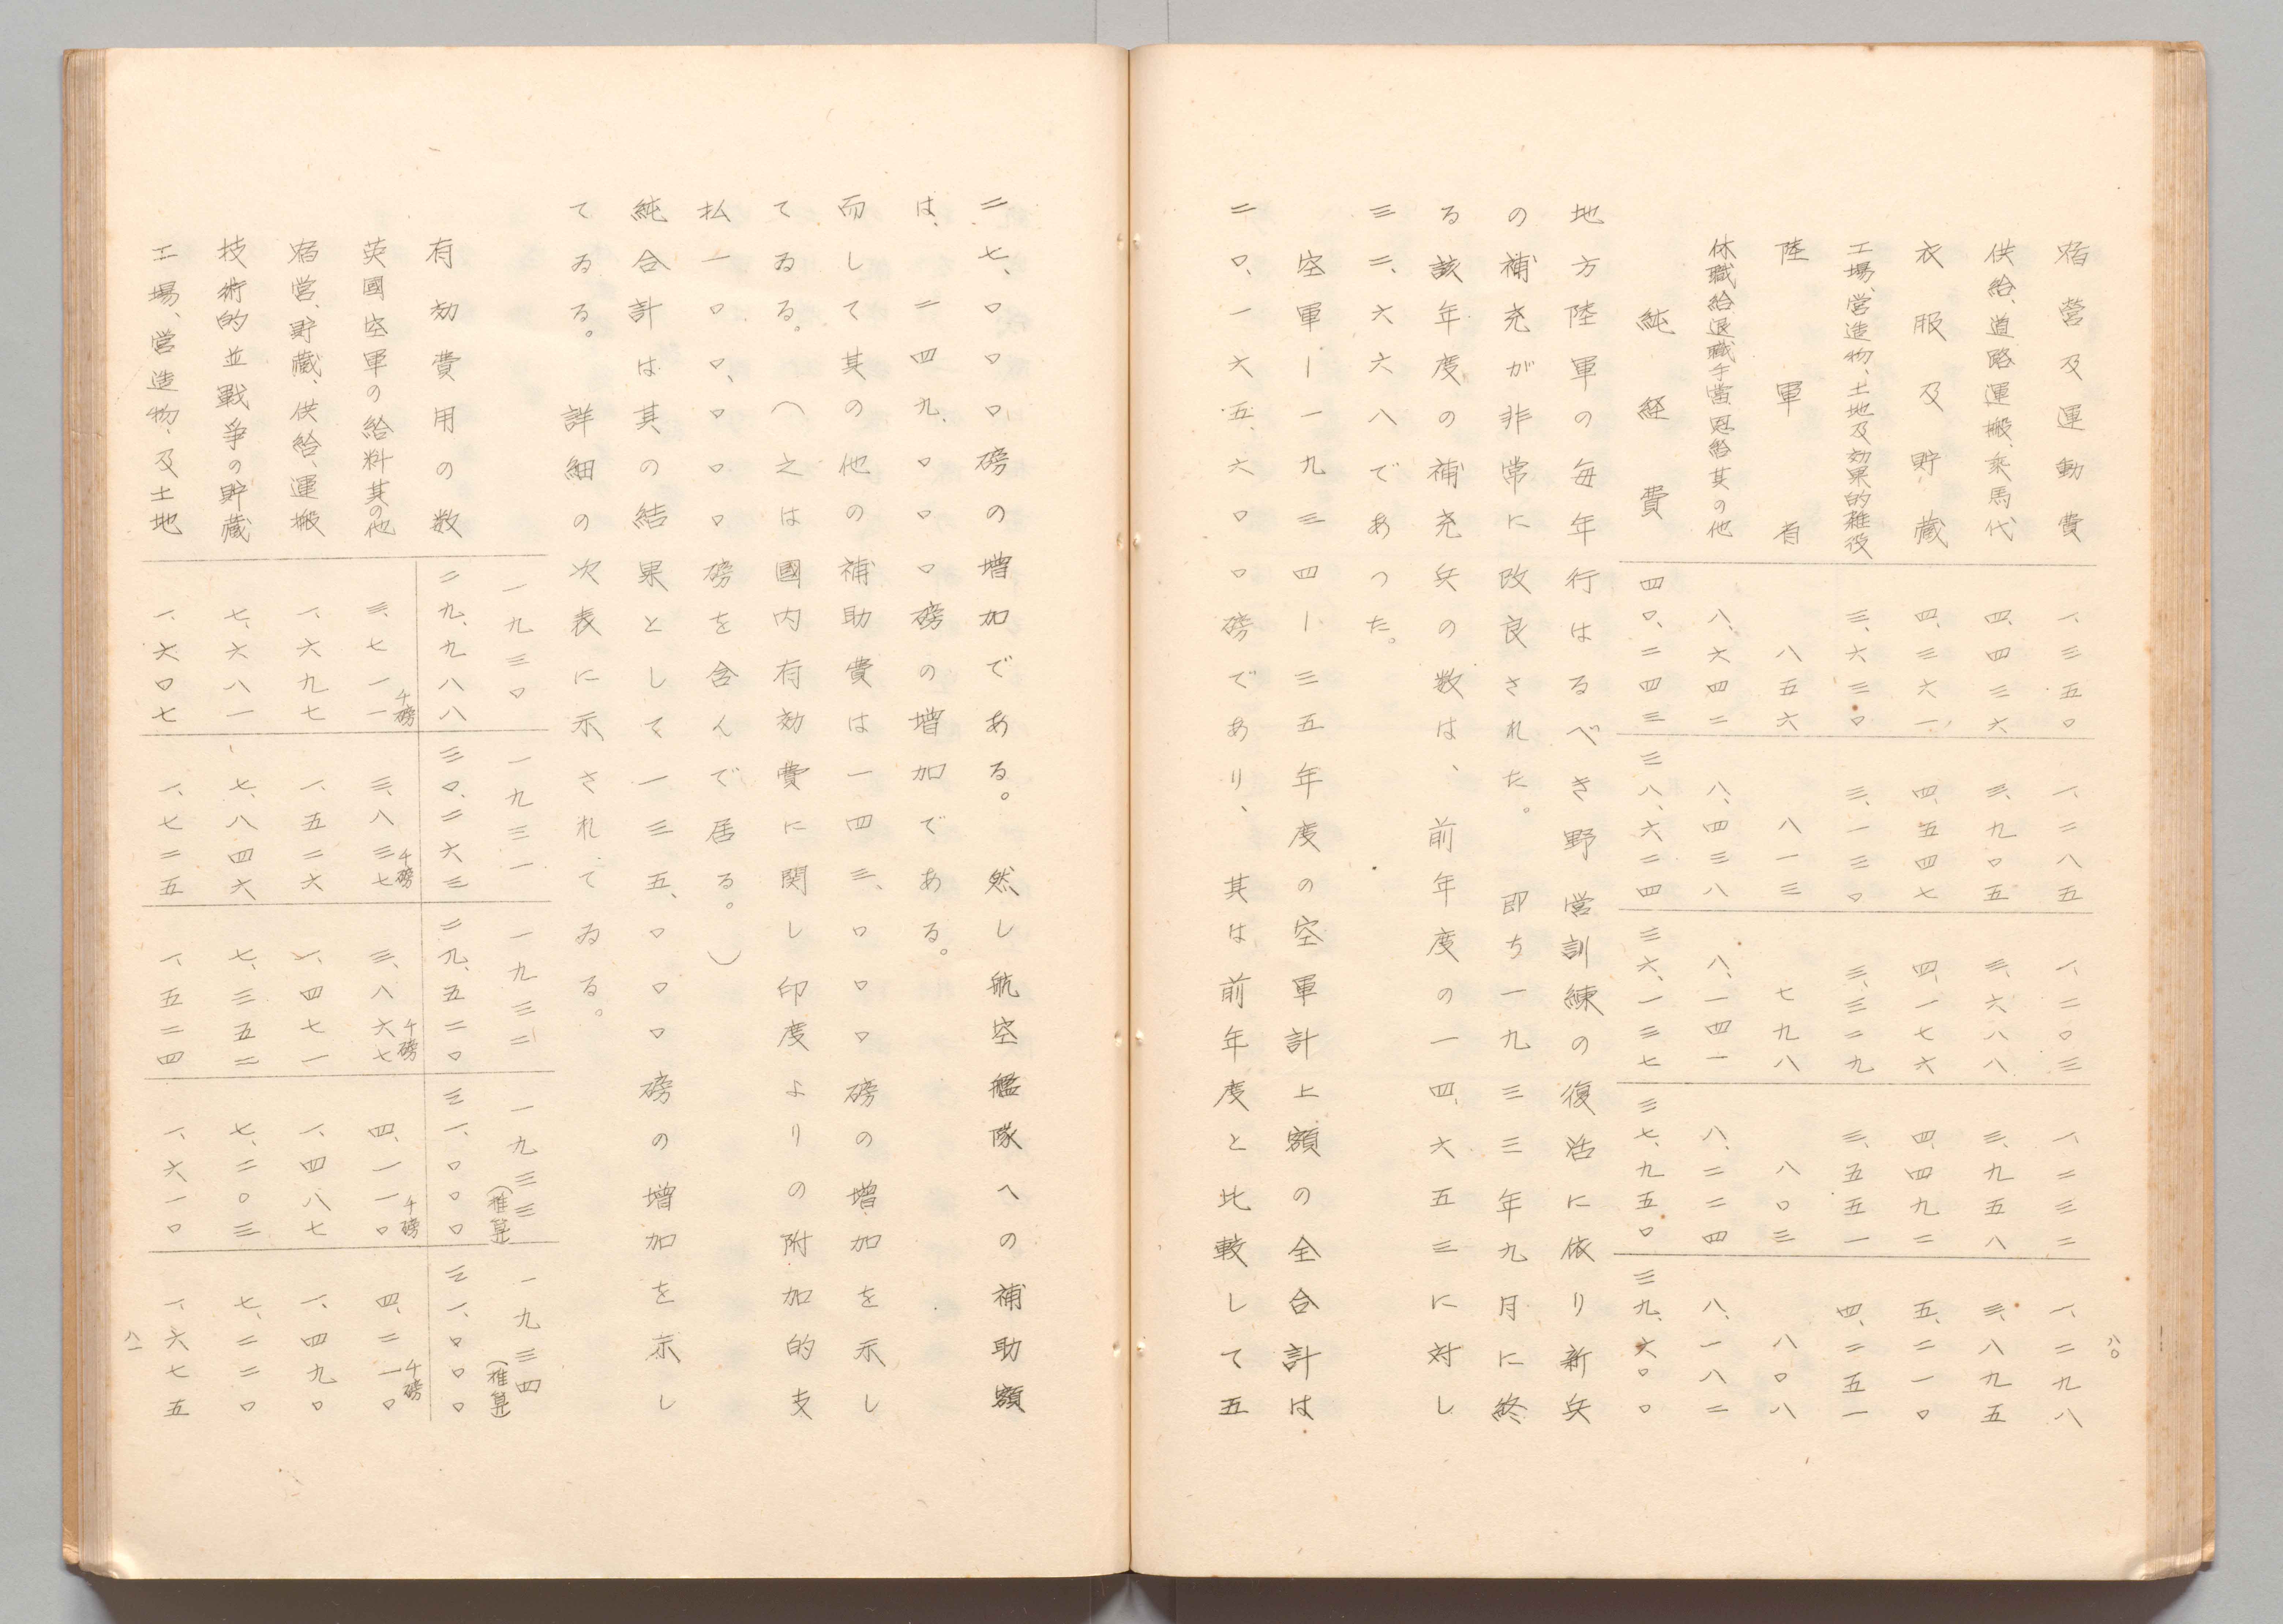 宿営及運動費 一、三五〇 一、二八五 一、二〇三 一、二三二 一、二九八
供給、道路運搬、乗馬代 四、四三六 三、九〇五 三、六八八 三、九五八 三、八九五
衣服及貯蔵 四、三六一 四、五四七 四、一七六 四、四九二 五、二一〇
工場、営造物、土地及効果的雑役 三、六三〇 三、一三〇 三、三二九 三、五五一 四、二五一
陸軍省 八五六 八一三 七九八 八〇三 八〇八
休職給退職手當恩給其の他 八、六四二 八、四三八 八、一四一 八、二二四 八、一八二
純経費 四〇、二四三 三八、六二四 三六、一三七 三七、九五〇 三九、六〇〇
地方陸軍の毎年行はるべき野営訓練の復活に依り新兵
の補充が非常に改良された。即ち一九三三年九月に終
る該年度の補充兵の数は、前年度の一四、六五三に対し
三二、六六八であつた。
空軍ー一九三四ー三五年度の空軍計上額の全合計は
二〇、一六五、六〇〇磅であり、其は前年度と比較して五
八〇
二七、〇〇〇磅の増加である。然し航空艦隊への補助額
は、二四九、〇〇〇磅の増加である。
而して其の他の補助費は一四三、〇〇〇磅の増加を示し
てゐる。（之は國内有効費に関し印度よりの附加的支
払一〇〇、〇〇〇磅を含んで居る。）
純合計は其の結果として一三五、〇〇〇磅の増加を示し
てゐる。詳細の次表に示されてゐる。
一九三〇 一九三一 一九三二 一九三三（推算） 一九三四（推算）
有効費用の数 二九、九八八 三〇、二六三 二九、五二〇 三一、〇〇〇 三一、〇〇〇
千磅 千磅 千磅 千磅 千磅
英國空軍の給料其の他 三、七一一 三、八三七 三、八六七 四、一一〇 四、二一〇
宿営、貯蔵、供給、運搬 一、六九七 一、五二六 一、四七一 一、四八七 一、四九〇
技術的並戦争の貯蔵 七、六八一 七、八四六 七、三五二 七、二〇三 七、二二〇
工場、営造物、及土地 一、六〇七 一、七二五 一、五二四 一、六一〇 一、六七五
八一